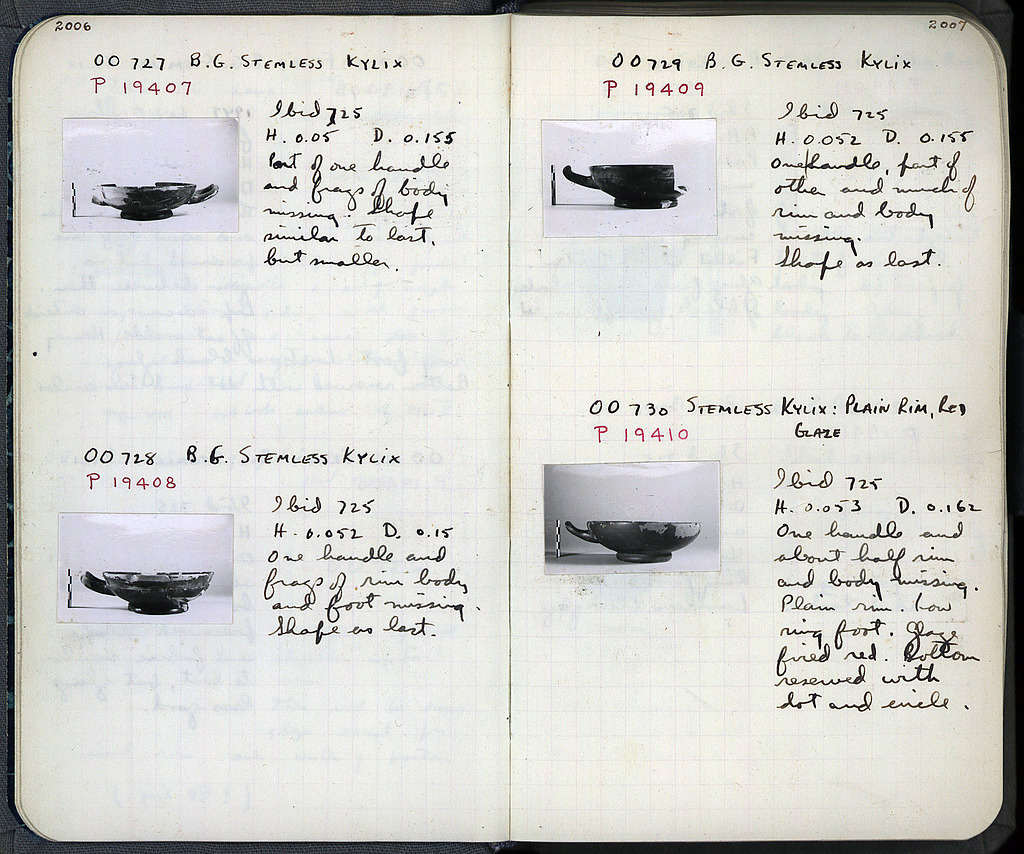 2006
OO 727 B.G. STEMLESS KYLIX
P 19407
Ibid 725
H. 0.05 D. 0.155
Part of one handle
and frags of body
missing. Shape
similar to last,
but smaller.
OO 728 B.G. STEMLESS KYLIX
P 19408
Ibid 725
H. 0.052 D. 0.15
One handle and
frags of rim body
and foot missing.
Shape as last.
2007
OO 729 B.G. STEMLESS KYLIX
P 19409
Ibid 725
H. 0.052 D. 0.155
One handle, part of
other and much of
rim and body
missing.
Shape as last.
OO 730 STEMLESS KYLIX: PLAIN RIM, RED
GLAZE
P 19410
Ibid 725
H. 0.053 D. 0.162
One handle and
about half rim
and body missing.
Plain rim. Low
ring foot. Glaze
fired red. Bottom
reserved with
dot and circle.